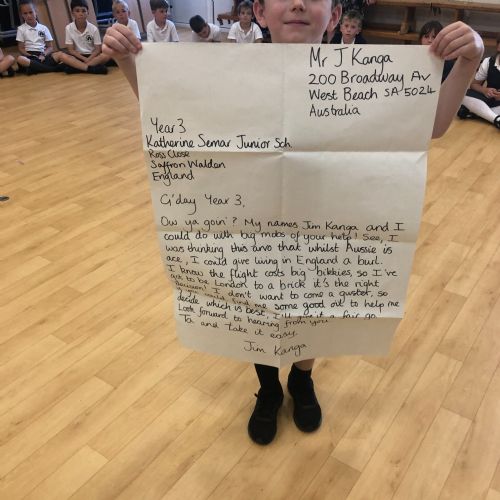 Mr J Kanga
200 Broadway Av
West Beach SA 5024
Australia
Year 3
Katherine Semar Junior Sch.
Ross Close
Saffron Walden
England
G'day Year 3,
Ow ya goin'? My names Jim Kanga and I
could do with big mobs of your help! See, I
was thinking this arvo that whilst Aussie is
ace, I could give living in England a burl.
I know the flight costs big bikkies, so I've
got to be London to a brick it's the right
decision! I don't want to come a guster, so
if you could find me some good oil to help me
decide which is best, I'll give it a fair go.
Look forward to hearing from you
Ta and take it easy,
Jim Kanga